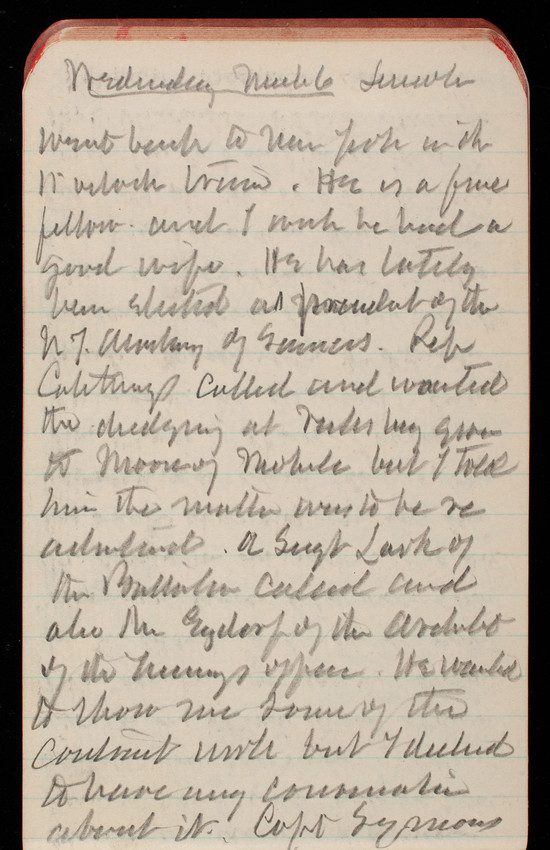 Wednesday March 6 Lincoln
went back to New York with
11 o'clock train. He is a fine
fellow and I wish he had a
good wife. He has lately
been elected as president of the
N.Y. Academy of Sciences. Rep
Catchings called and wanted
the dredging at given
to Moore of Mobile but I told
him the matter was to be re
advertised. A Sergt Lark of
the Battalion called and
also the of the Architect
of the office. He wanted
to show me some of the
contract work but I declined
to have any conversation
about it. Capt Symons